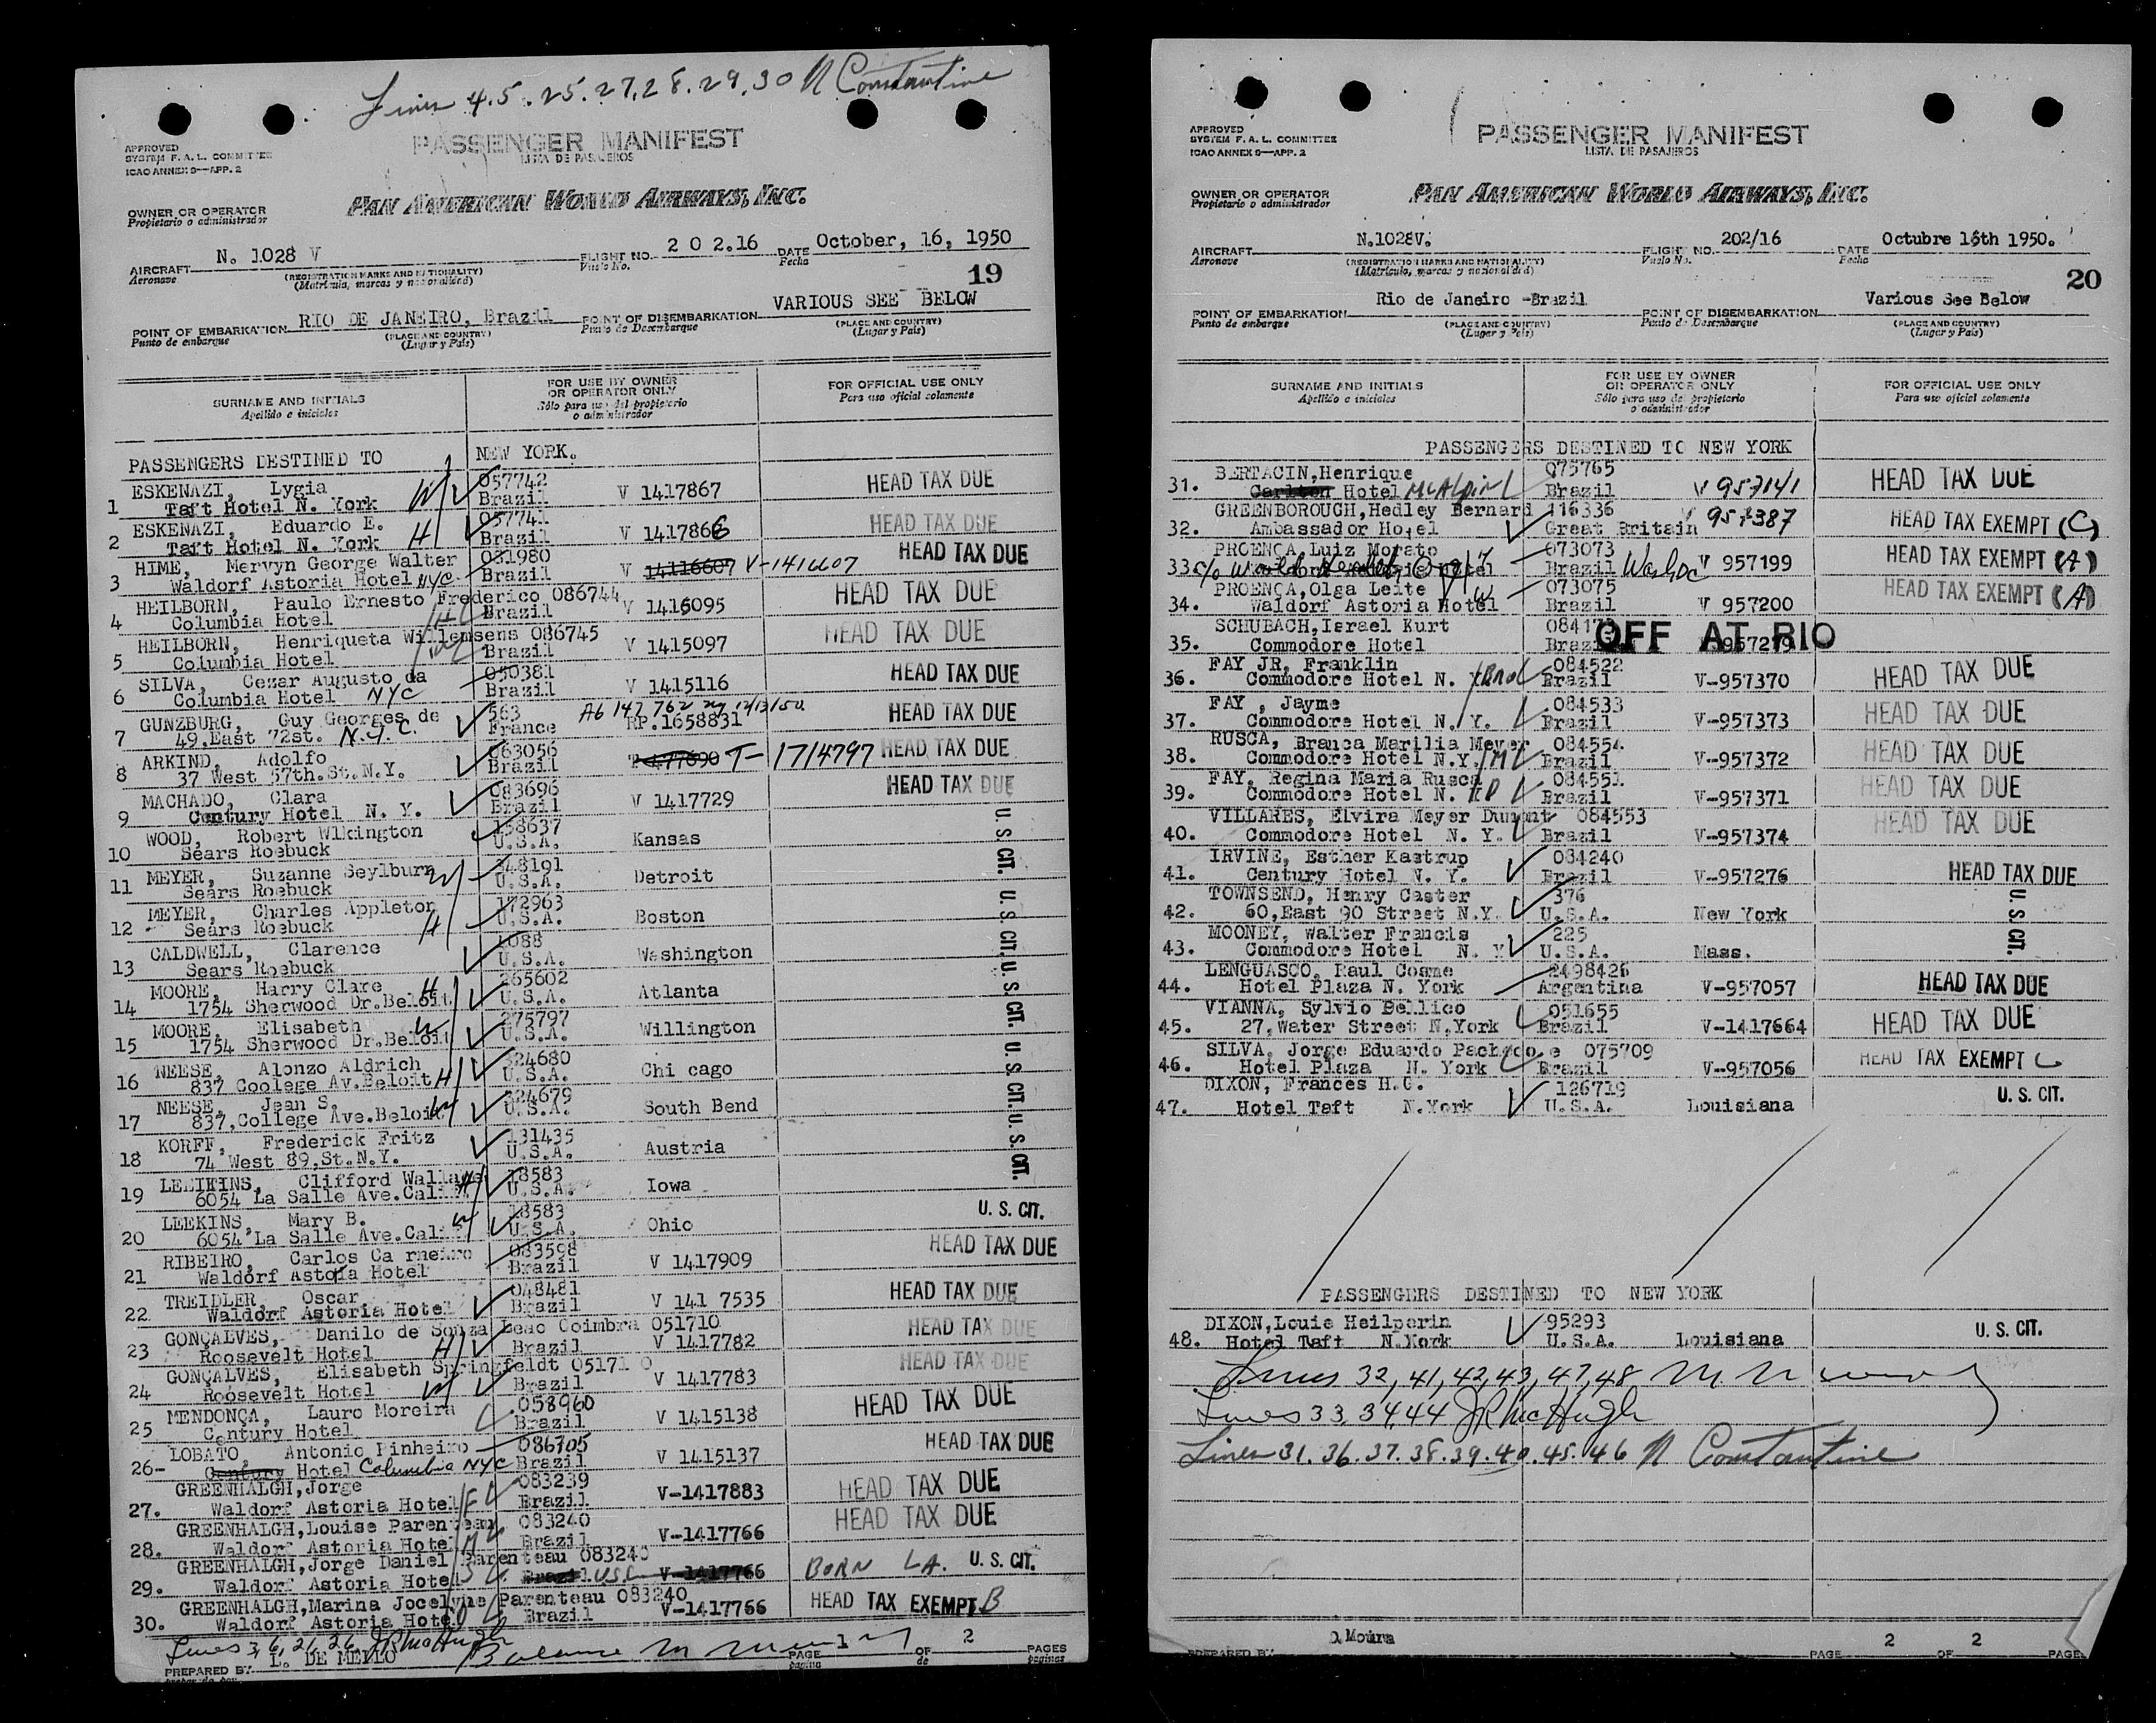 Lines 4.5.25.27.28.29.30 N Constantine
PASSENGER MANIFEST
LISTA DE PASAJEROS
APPROVED
SYSTEM F. A. L. COMMITTEE
ICAO ANNEX 9—APP. 2
PAN AMERICAN WORLD AIRWAYS, INC.
OWNER OR OPERATOR
Propietario o administrador
AIRCRAFT N. 1028 V FLIGHT NO. 2 0 2.16 DATE October, 16, 1950
Aeronave (REGISTRATION MARKS AND NATIONALITY) Vuelo No. Fecha
(Matrícula, marcas y nacionalidad) 19
POINT OF EMBARKATION RIO DE JANEIRO, Brazil POINT OF DISEMBARKATION VARIOUS SEE BELOW
Punto de embarque (PLACE AND COUNTRY) Punto de Desembarque (PLACE AND COUNTRY)
(Lugar y País) (Lugar y País)
SURNAME AND INITIALS FOR USE BY OWNER OR OPERATOR ONLY FOR OFFICIAL USE ONLY
Apellido e iniciales Sólo para uso del propietario o administrador Para uso oficial solamente
PASSENGERS DESTINED TO NEW YORK.
ESKENAZI, Lygia W 057742
1 Taft Hotel N. York Brazil V 1417867 HEAD TAX DUE
ESKENAZI, Eduardo E. 057741
2 Taft Hotel N. York H Brazil V 1417866 HEAD TAX DUE
HIME, Mervyn George Walter 031980
3 Waldorf Astoria Hotel NYC Brazil V 14116607 V-1416607 HEAD TAX DUE
HEILBORN, Paulo Ernesto Frederico 086744
4 Columbia Hotel H Brazil V 1415095 HEAD TAX DUE
HEILBORN, Henriqueta Willemsens 086745
5 Columbia Hotel Brazil V 1415097 HEAD TAX DUE
SILVA, Cezar Augusto da 050381
6 Columbia Hotel NYC Brazil V 1415116 HEAD TAX DUE
GUNZBURG, Guy Georges de 563 A6 147 762 ny 12/13/50
7 49.East 72st. N.Y.C. France RP.1658831 HEAD TAX DUE
ARKIND, Adolfo 063056
8 37 West 57th.St.N.Y. Brazil T-1714797 HEAD TAX DUE
MACHADO, Clara 083696
9 Century Hotel N. Y. Brazil V 1417729 HEAD TAX DUE
WOOD, Robert Wlkington 158637
10 Sears Roebuck U.S.A. Kansas U. S. CIT.
MEYER, Suzanne Seylburn W 348191
11 Sears Roebuck U.S.A. Detroit
MEYER, Charles Appleton 172963
12 Sears Roebuck H U.S.A. Boston U. S. CIT.
CALDWELL, Clarence 1088
13 Sears Roebuck U.S.A. Washington
MOORE, Harry Clare H 265602
14 1754 Sherwood Dr.Beloit U.S.A. Atlanta U. S. CIT.
MOORE, Elisabeth W 275797
15 1754 Sherwood Dr.Beloit U.S.A. Willington
NEESE, Alonzo Aldrich 324680
16 837 Coolege Av.Beloit H U.S.A. Chi cago U. S. CIT.
NEESE, Jean S. 324679
17 837,College Ave.Beloit W U.S.A. South Bend
KORFF, Frederick Fritz 131435
18 74 West 89.St.N.Y. U.S.A. Austria U. S. CIT.
LEEIKINS, Clifford Wallace 18583
19 6054 La Salle Ave.Calif H U.S.A. Iowa
LEEKINS, Mary B. W 18583
20 6054 La Salle Ave.Calif U.S.A. Ohio U. S. CIT.
RIBEIRO, Carlos Ca rneiro 083598
21 Waldorf Astoria Hotel Brazil V 1417909 HEAD TAX DUE
TREIDLER, Oscar 048481
22 Waldorf Astoria Hotel Brazil V 141 7535 HEAD TAX DUE
GONÇALVES, Danilo de Souza Leao Coimbra 051710
23 Roosevelt Hotel H Brazil V 1417782 HEAD TAX DUE
GONÇALVES, Elisabeth Springfeldt 05171 0
24 Roosevelt Hotel W Brazil V 1417783 HEAD TAX DUE
MENDONÇA, Lauro Moreira 058960
25 Century Hotel Brazil V 1415138 HEAD TAX DUE
LOBATO, Antonio Pinheiro 086705
26- Century Hotel Columbia NYC Brazil V 1415137 HEAD TAX DUE
GREENHALGH,Jorge 083239
27. Waldorf Astoria Hotel F Brazil V-1417883 HEAD TAX DUE
GREENHALGH,Louise Parenteau 083240
28. Waldorf Astoria Hotel M Brazil V-1417766 HEAD TAX DUE
GREENHALGH,Jorge Daniel Parenteau 083240
29. Waldorf Astoria Hotel S Brazil V-1417766 BORN LA. U. S. CIT.
GREENHALGH,Marina Jocelyne Parenteau 083240
30. Waldorf Astoria Hotel D Brazil V-1417766 HEAD TAX EXEMPT B
Lines 3,6,21,26. JR McHugh
PREPARED BY L. DE MELLO Balance PAGE 1 OF 2 PAGES
página de páginas
PASSENGER MANIFEST
LISTA DE PASAJEROS
APPROVED
SYSTEM F. A. L. COMMITTEE
ICAO ANNEX 9—APP. 2
OWNER OR OPERATOR PAN AMERICAN WORLD AIRWAYS, INC.
Propietario o administrador
AIRCRAFT N.1028V. FLIGHT NO. 202/16 DATE Octubre 16th 1950.
Aeronave (REGISTRATION MARKS AND NATIONALITY) Vuelo No. Fecha
(Matrícula, marcas y nacionalidad) 20
Rio de Janeiro -Brazil Various See Below
POINT OF EMBARKATION POINT OF DISEMBARKATION
Punto de embarque (PLACE AND COUNTRY) Punto de Desembarque (PLACE AND COUNTRY)
(Lugar y País) (Lugar y País)
SURNAME AND INITIALS FOR USE BY OWNER OR OPERATOR ONLY FOR OFFICIAL USE ONLY
Apellido e iniciales Sólo para uso del propietario o administrador Para uso oficial solamente
PASSENGERS DESTINED TO NEW YORK
BERTACIN,Henrique 075765
31. Carlton Hotel McAlpin Brazil V 957141 HEAD TAX DUE
GREENBOROUGH,Hedley Bernard 116336
32. Ambassador Hotel Great Britain V 957387 HEAD TAX EXEMPT (C)
PROENÇA,Luiz Morato H 073073
33. c/o World Health Org Brazil Wash DC V 957199 HEAD TAX EXEMPT (A)
PROENÇA,Olga Leite W 073075
34. Waldorf Astoria Hotel Brazil V 957200 HEAD TAX EXEMPT (A)
SCHUBACH,Israel Kurt
35. Commodore Hotel Brazil 957279 OFF AT RIO
FAY JR, Franklin 084522
36. Commodore Hotel N. Brazil V-957370 HEAD TAX DUE
FAY , Jayme 084533
37. Commodore Hotel N. Y. Brazil V-957373 HEAD TAX DUE
RUSCA, Branca Marilia Meyer 084554
38. Commodore Hotel N.Y. M Brazil V-957372 HEAD TAX DUE
FAY, Regina Maria Rusca 084551
39. Commodore Hotel N. Brazil V-957371 HEAD TAX DUE
VILLARES, Elvira Meyer Dumont 084553
40. Commodore Hotel N. Y. Brazil V-957374 HEAD TAX DUE
IRVINE, Esther Kastrup 084240
41. Century Hotel N. Y. Brazil V-957276 HEAD TAX DUE
TOWNSEND, Henry Caster 376
42. 60,East 90 Street N.Y. U.S.A. New York U. S. CIT.
MOONEY, Walter Francis 225
43. Commodore Hotel N. Y U.S.A. Mass.
LENGUASCO, Raul Cosme 2498426
44. Hotel Plaza N. York Argentina V-957057 HEAD TAX DUE
VIANNA, Sylvio Bellico 051655
45. 27,Water Street N.York Brazil V-1417664 HEAD TAX DUE
SILVA, Jorge Eduardo Pacheco e 075709
46. Hotel Plaza N. York Brazil V-957056 HEAD TAX EXEMPT C
DIXON, Frances H.G. 126719
47. Hotel Taft N.York U.S.A. Louisiana U. S. CIT.
PASSENGERS DESTINED TO NEW YORK
DIXON,Louie Heilperin 95293
48. Hotel Taft N.York U.S.A. Louisiana U. S. CIT.
Lines 32,41,42,43,47,48
Lines 33,34 44 JR McHugh
Lines 31.36.37.38.39.40.45.46 N Constantine
PREPARED BY O.Moura PAGE 2 OF 2 PAGES